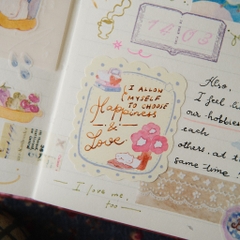 I ALLOW
MYSELF
TO CHOOSE
Happiness
&
Love
Also,
I feel li
our hobbies
each
others, ad t
same time.
I love me,
too